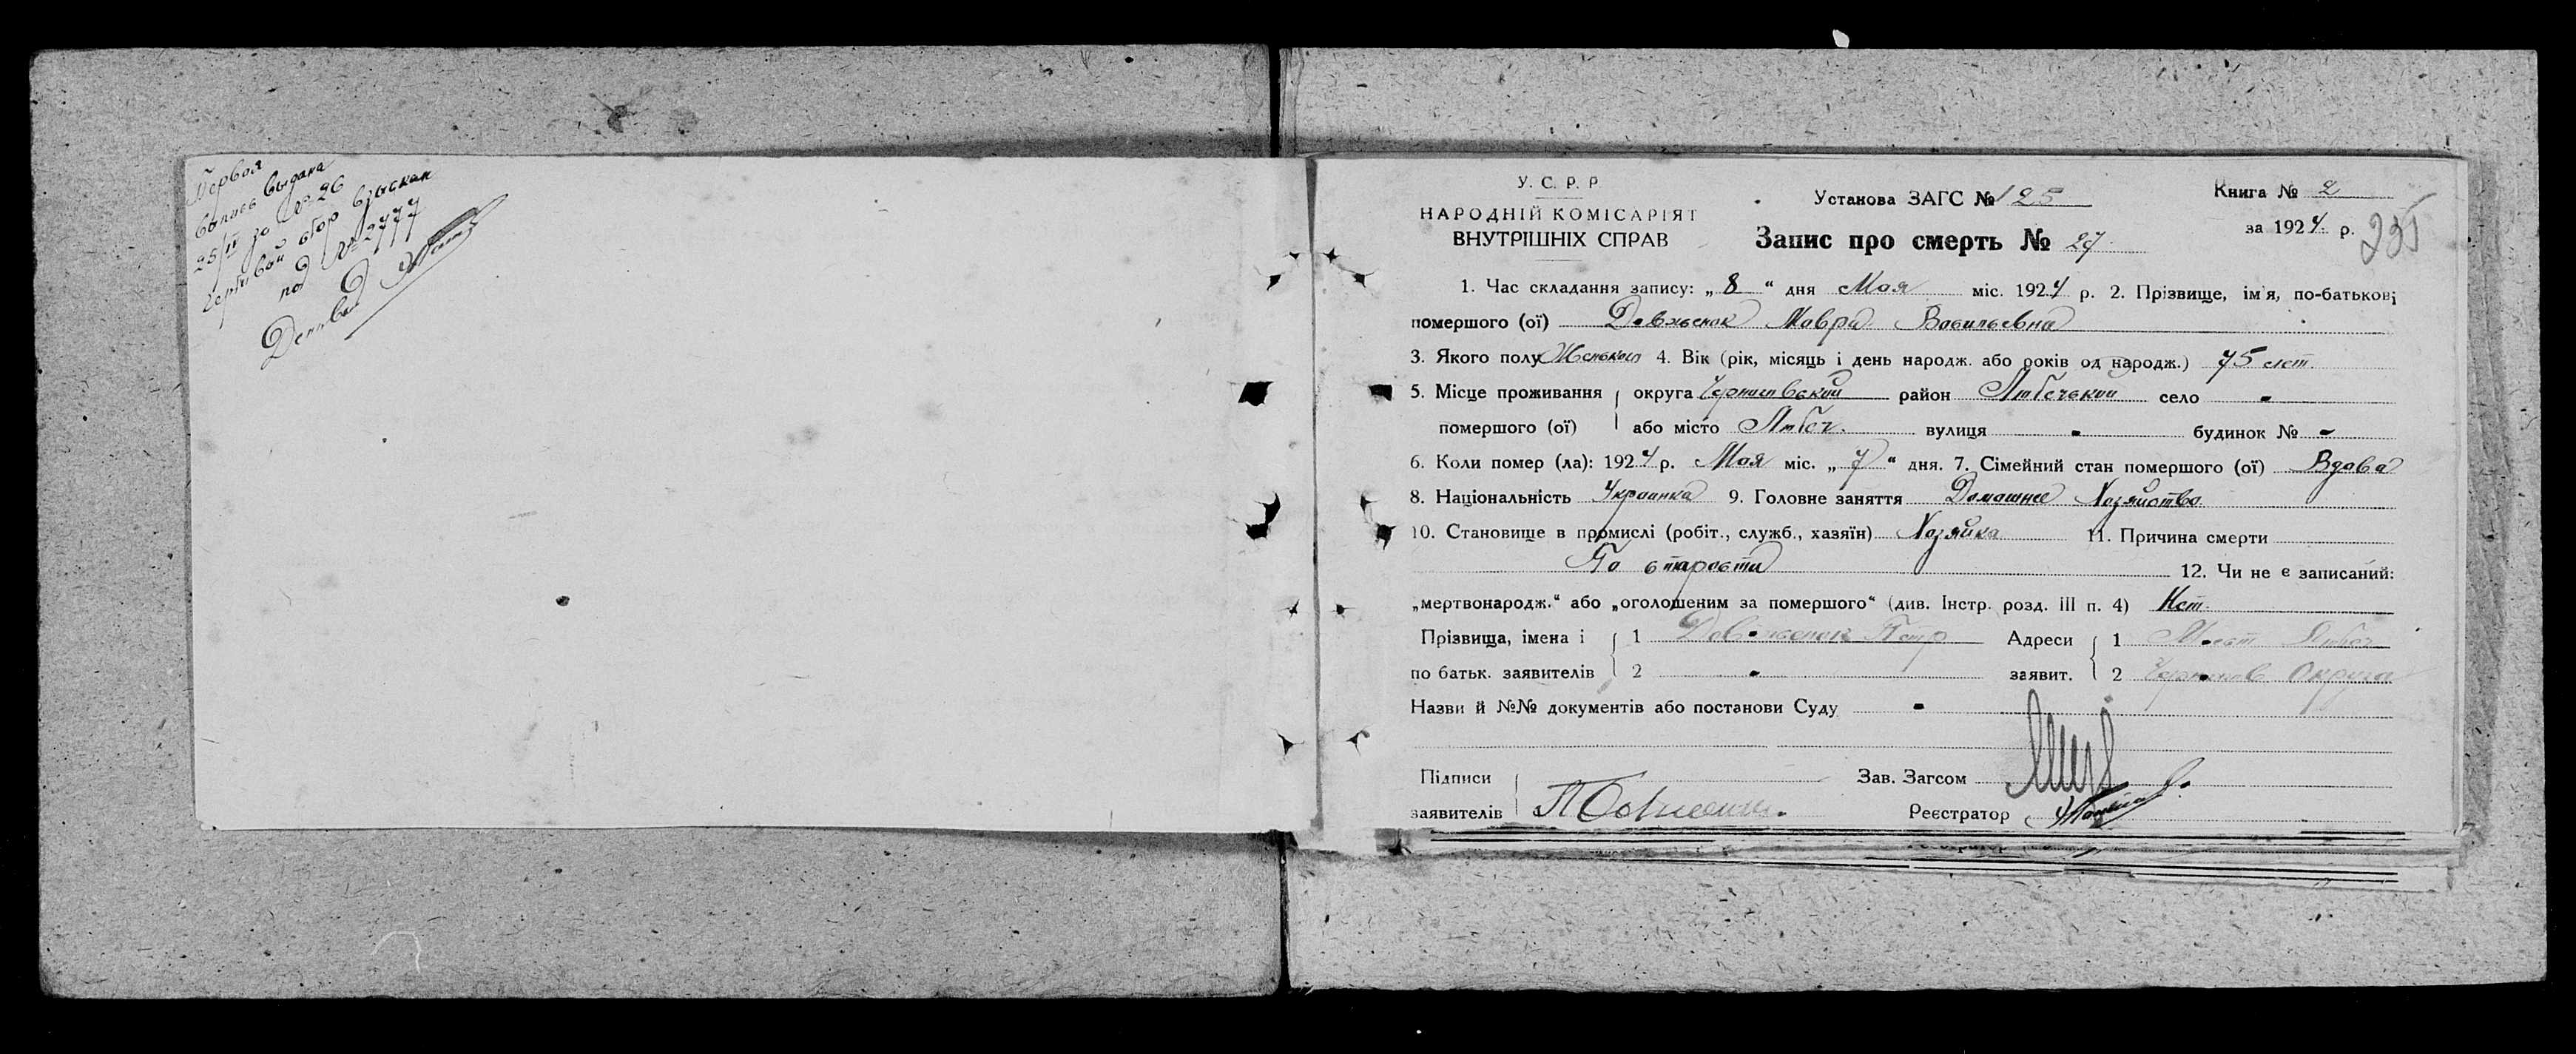 Первая
Выпись выдана
25/II за № 26
гербовый сбор взыскан
под № 2777
У. С. Р. Р
НАРОДНІЙ КОМІСАРІЯТ
ВНУТРІШНІХ СПРАВ
Установа ЗАГС № 125
Запис про смерть № 27
Книга № 2
за 1924 р.
235
1. Час складання запису: „ 8 “ дня Мая міс. 1924 р. 2. Прізвище, ім'я, по-батькові
помершого (ої) Довженок Мавра Васильевна
3. Якого полу Женского 4. Вік (рік, місяць і день народж. або років од народж.) 75 лет.
5. Місце проживання округа Черниговский район Любечский село -
помершого (ої) або місто Любеч. вулиця - будинок № -
6. Коли помер (ла): 1924 р. Мая міс. „ 7 “ дня. 7. Сімейний стан помершого (ої) Вдова
8. Національність Украинка 9. Головне заняття Домашнее Хозяйство
10. Становище в промислі (робіт., служб., хазяїн) Хозяйка 11. Причина смерти
По старости 12. Чи не є записаний:
„мертвонародж.“ або „оголошеним за помершого“ (див. Інстр. розд. III п. 4) Нет.
Прізвища, імена і 1 Довженок Петр Адреси 1 Мест Любеч
по батьк. заявителів 2 - заявит. 2 Чернигов Округа
Назви й №№ документів або постанови Суду -
Підписи Зав. Загсом
заявителів Реєстратор